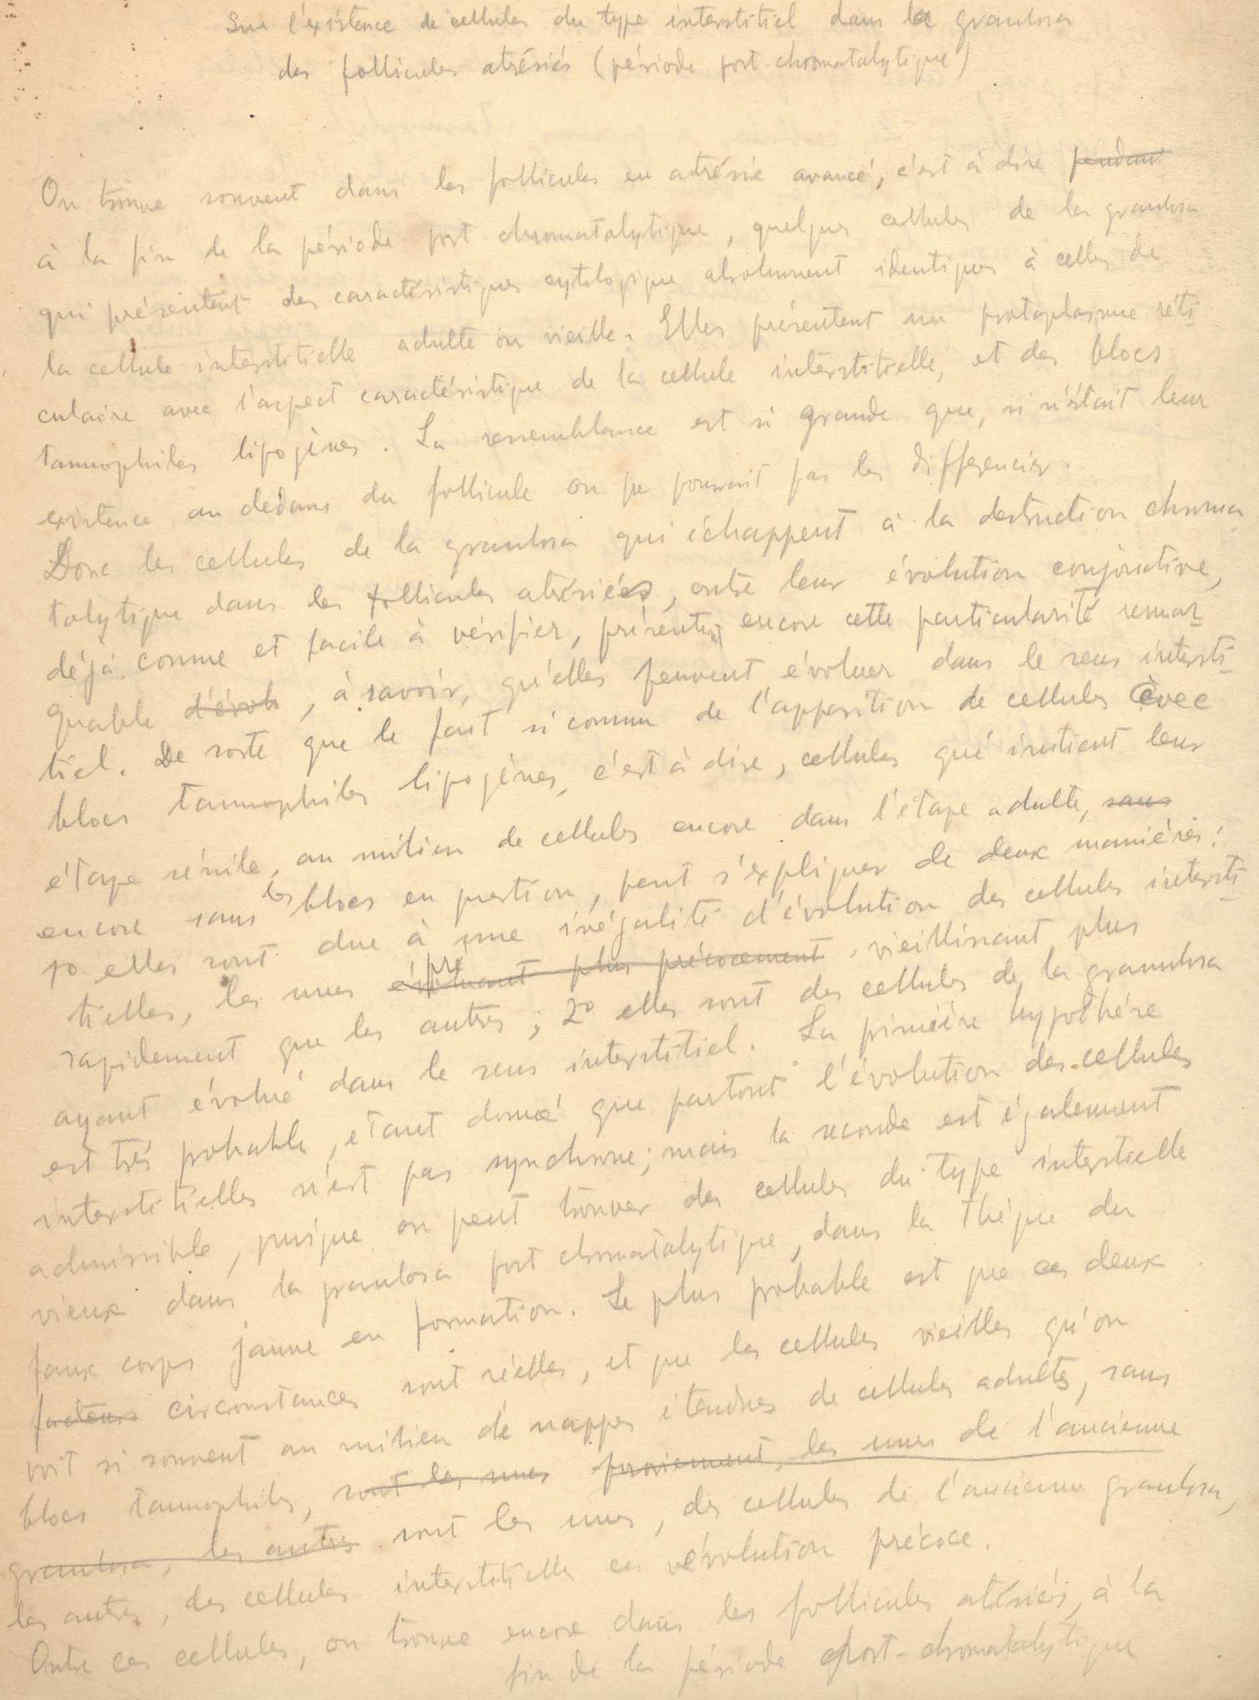 Sur l'existence de cellules du type interstitiel dans la granulosa
des follicules atrésiés (période post-chromatolytique)
On trouve souvent dans les follicules en atrésie avancé, c'est à dire pendant
à la fin de la période post chromatolytique, quelques cellules de la granulosa
qui présentent des caractéristiques cytologique absolument identiques à celles de
la cellule interstitielle adulte ou vieille. Elles présentent un protoplasme réti
culaire avec l'aspect caractéristique de la cellule interstitielle, et des blocs
tannophiles lipogènes. La ressemblance est si grande que, si n'était leur
existence au dedans du follicule on ne pourrait pas les differencier.
Donc les cellules de la granulosa qui échappent à la destruction chroma
tolytique dans les follicules atrésiées, outre leur évolution conjonctive,
déjà connue et facile à vérifier, présentent encore cette particularité remar-
quable d'évolu, à savoir, qu'elles peuvent évoluer dans le sens intersti-
tiel. De sorte que le fait si commun de l'apparition de cellules avec
blocs tannophiles lipogènes, c'est à dire, cellules qui initient leur
étape sénile, au milieu de cellules encore dans l'étape adulte, sans
encore sans les blocs en question, peut s'expliquer de deux manières:
1º elles sont due à une inégalité d'évolution des cellules intersti-
tielles, les unes évoluant plus précocement vieillissant plus
rapidement que les autres; 2º elles sont des cellules de la granulosa
ayant évolué dans le sens interstitiel. La première hypothère
est très probable, etant donné que partout l'évolution des cellules
interstitielles n'est pas synchrone; mais la seconde est également
admissible, puisque on peut trouver des cellules du type interstielle
vieux dans la granulosa post chromatolytique, dans la thèque du
faux corps jaune en formation. Le plus probable est que ces deux
facteurs circonstances sont réelles, et que les cellules vieilles qu'on
voit si souvent au milieu de nappes étendues de cellules adultes, sans
blocs tannophiles, sont les unes les unes de l'ancienne
granulosa, les autres sont les unes, des cellules de l'ancienne granulosa,
les autres, des cellules interstitielles en évolution précoce.
Outre ces cellules, on trouve encore dans les follicules atrésiés, à la
fin de la période post-chromatolytique